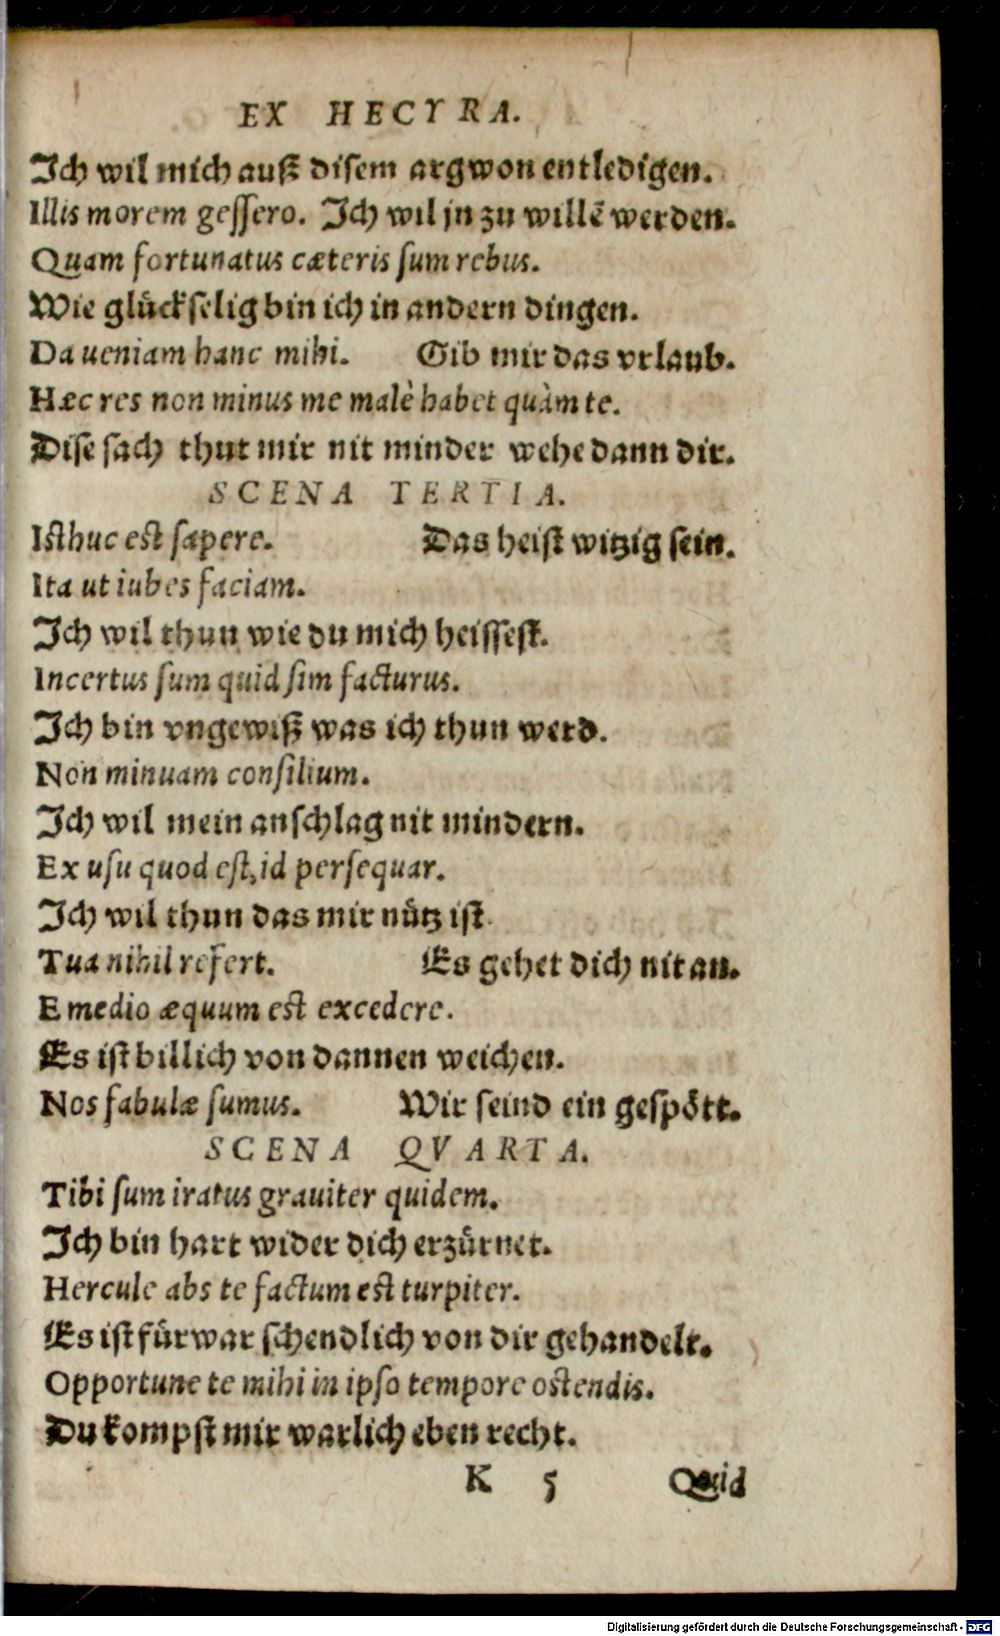 EX HECYRA.
Ich wil mich auß disem argwon entledigen.
Illis morem gessero. Ich wil jn zu willē werden.
Quam fortunatus cæteris sum rebus.
Wie glückselig bin ich in andern dingen.
Da ueniam hanc mihi. Gib mir das vrlaub.
Hæc res non minus me malè habet quàm te.
Dise sach thut mir nit minder wehe dann dir.
SCENA TERTIA.
Isthuc est sapere. Das heist witzig sein.
Ita ut iubes faciam.
Ich wil thun wie du mich heissest.
Incertus sum quid sim facturus.
Ich bin vngewiß was ich thun werd.
Non minuam consilium.
Ich wil mein anschlag nit mindern.
Ex usu quod est, id persequar.
Ich wil thun das mir nütz ist.
Tua nihil refert. Es gehet dich nit an.
E medio æquum est excedere.
Es ist billich von dannen weichen.
Nos fabulæ sumus. Wir seind ein gespött.
SCENA QVARTA.
Tibi sum iratus grauiter quidem.
Ich bin hart wider dich erzürnet.
Hercule abs te factum est turpiter.
Es ist fürwar schendlich von dir gehandelt.
Opportune te mihi in ipso tempore ostendis.
Du kompst mir warlich eben recht.
K 5 Quid
Digitalisierung gefördert durch die Deutsche Forschungsgemeinschaft - DFG